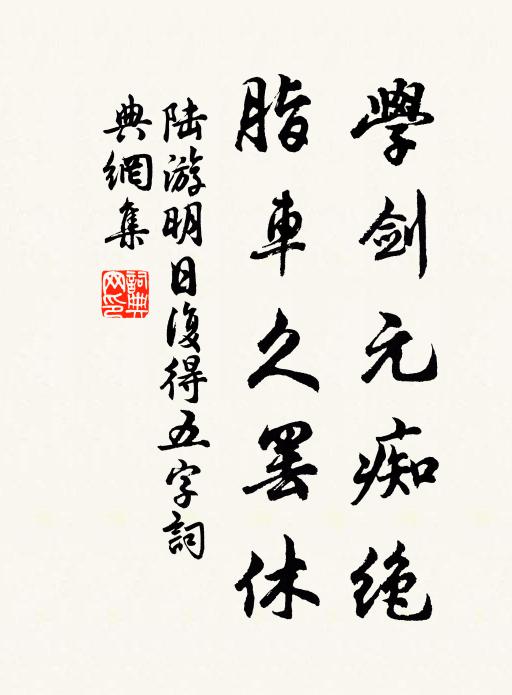 學劍元痴绝
脂車久罢休
陆游明日復得五字詞
典網集
詞典网印